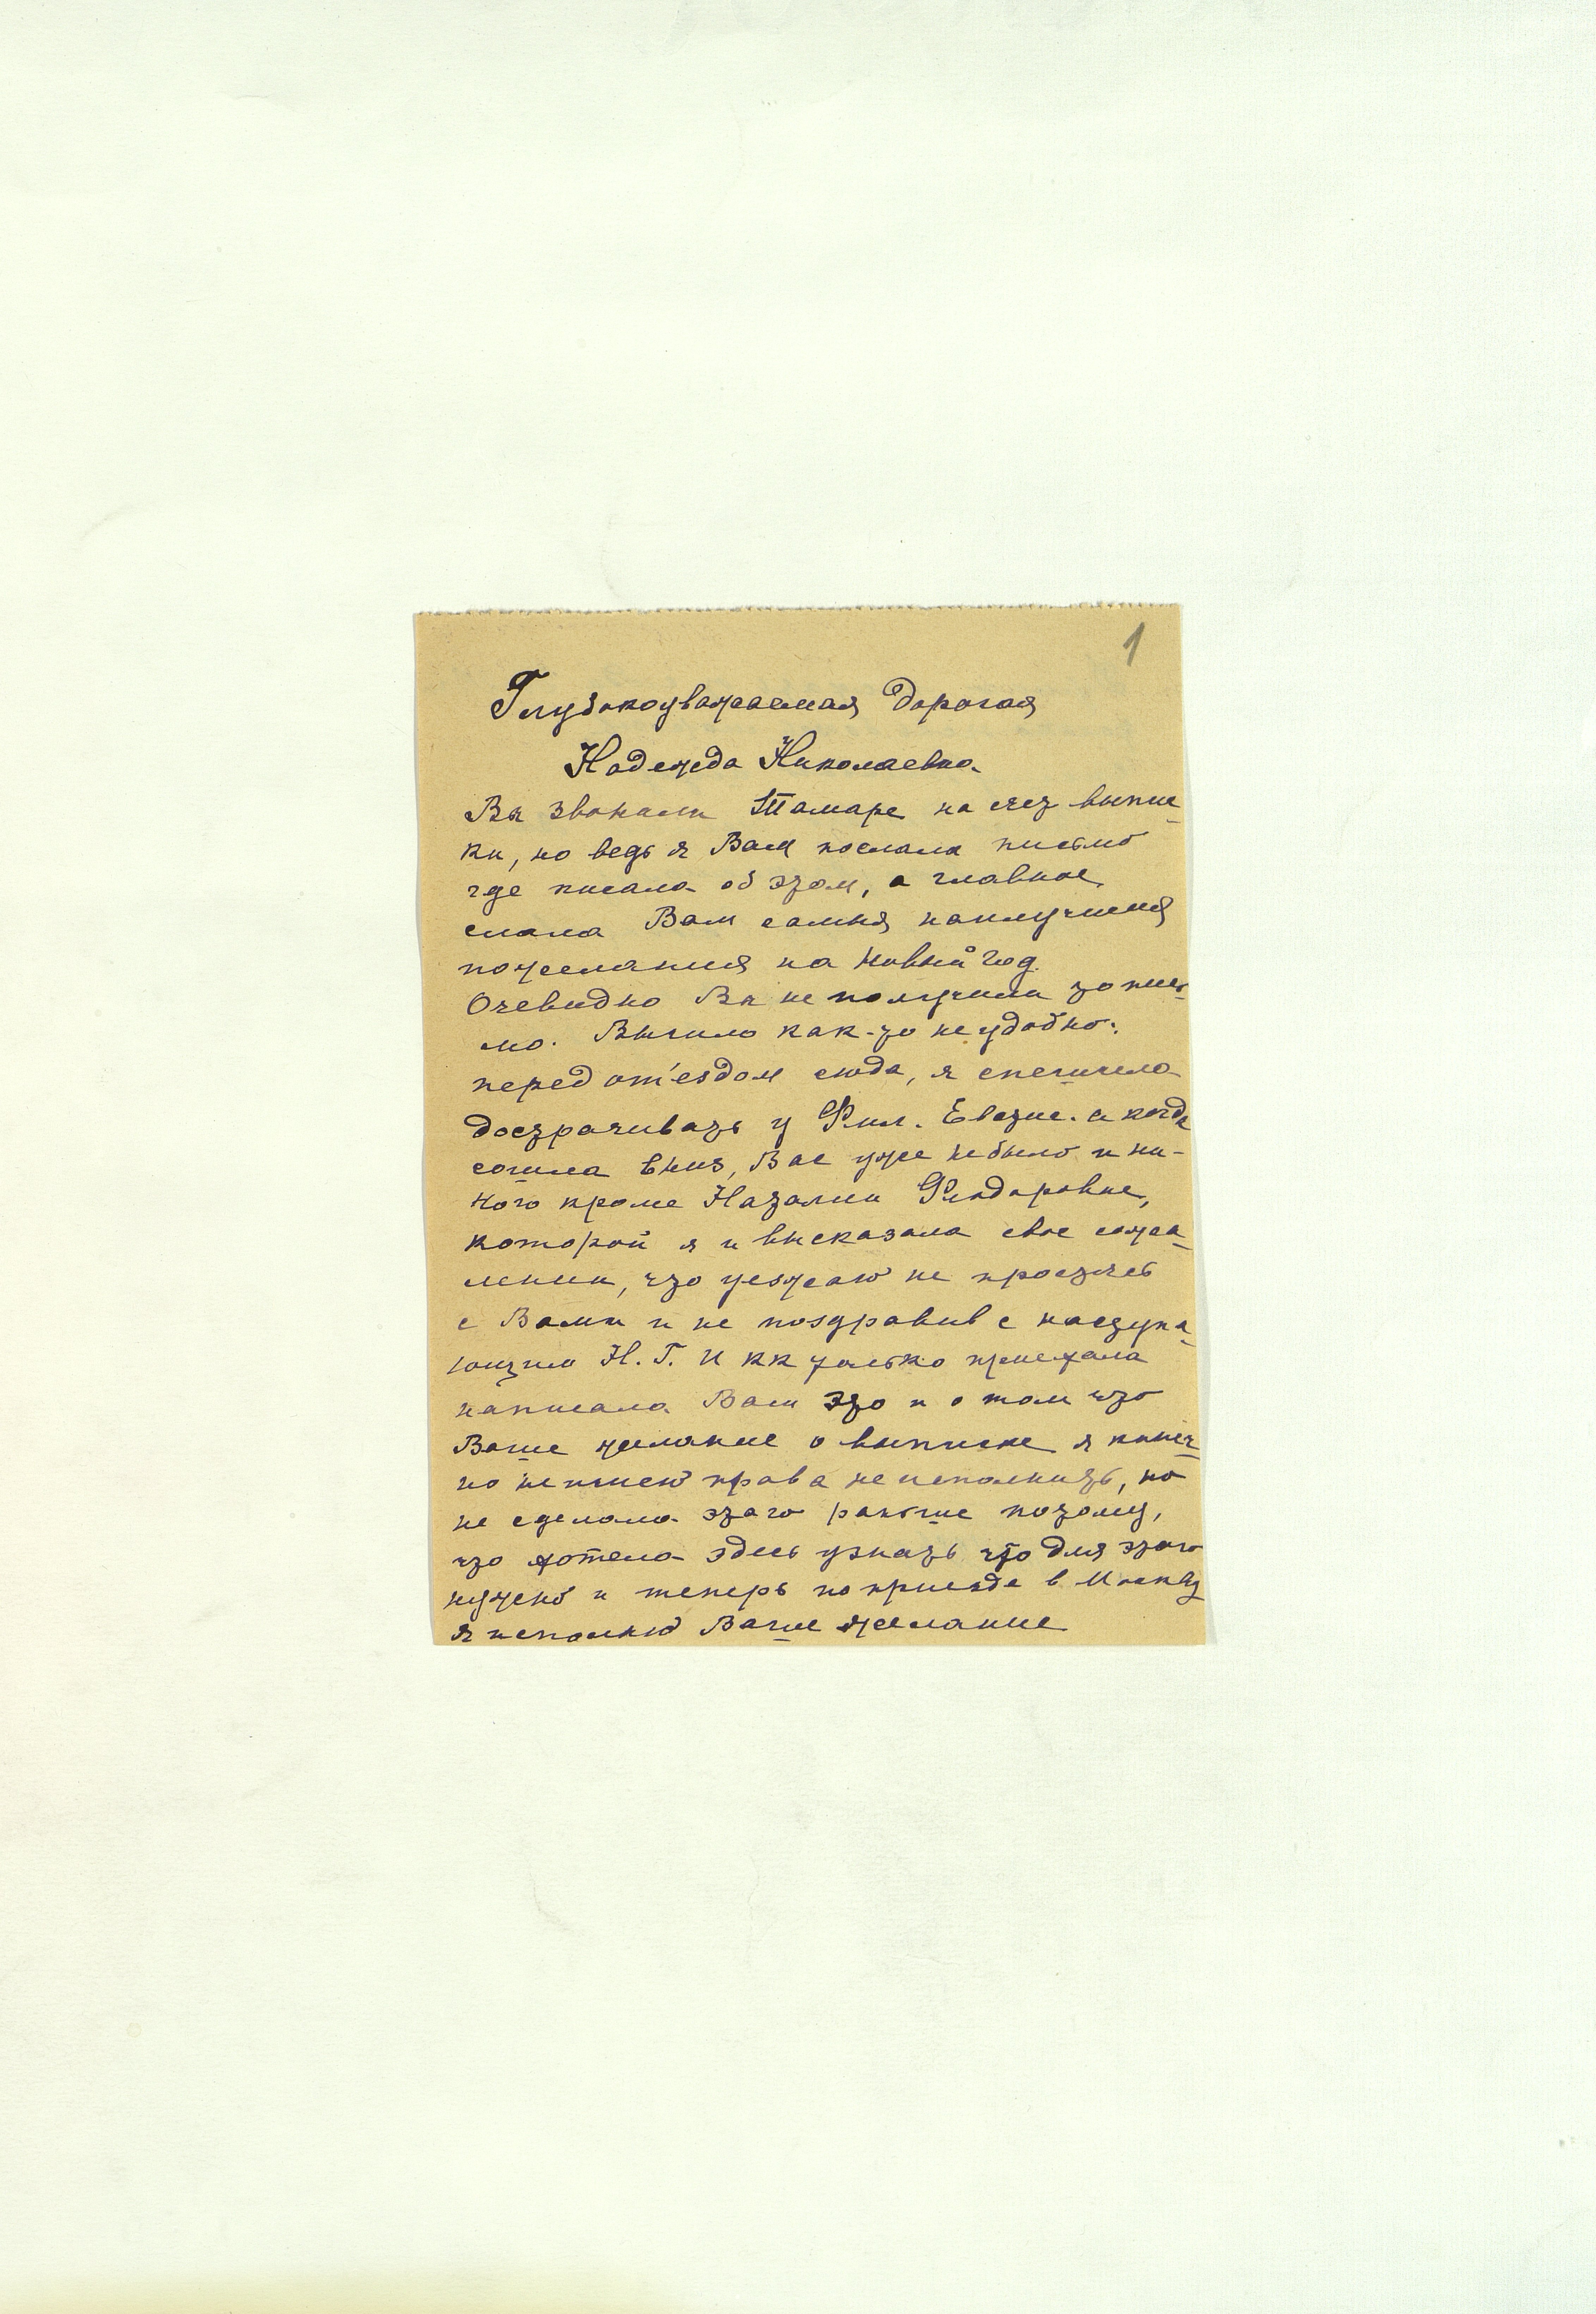 1
Глубокоуважаемая дорогая
Надежда Николаевна.
Вы звонили Тамаре на счет выпис-
ки, но ведь я Вам послала письмо
где писала об этом, а главное
слала Вам самыя наилучшия
пожелания на Новый год.
Очевидно Вы не получили то пись-
мо. Вышло как-то неудобно:
перед от'ездом сюда, я спешила
дострачивать у Фил. Евтис. а когда
сошла вниз, Вас уже не было и ни-
кого кроме Наталии Флодоровне,
которой я и высказала свое сожа-
лении, что уезжаю не простясь
с Вами и не поздравив с наступа-
ющим Н. Г. И кк только приехала
написала Вам это и о том что
Ваше желание о выписке я конеч-
но не имею права не исполнить, но
не сделала этого раньше потому,
что хотела здесь узнать что для этого
нужно и теперь по приезде в Москву
я исполню Ваше желание